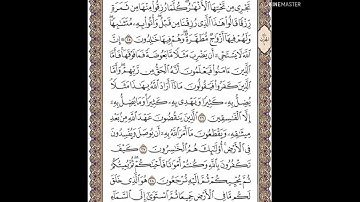 INEMASTER
تَجْرِى مِن تَحْتِهَا ٱلْأَنْهَٰرُ كُلَّمَا رُزِقُوا۟ مِنْهَا مِن ثَمَرَةٍ
رِّزْقًا قَالُوا۟ هَٰذَا ٱلَّذِى رُزِقْنَا مِن قَبْلُ وَأُتُوا۟ بِهِۦ مُتَشَٰبِهًا
وَلَهُمْ فِيهَآ أَزْوَٰجٌ مُّطَهَّرَةٌ وَهُمْ فِيهَا خَٰلِدُونَ ٢٥ ۞ إِنَّ
ٱللَّهَ لَا يَسْتَحْىِۦٓ أَن يَضْرِبَ مَثَلًا مَّا بَعُوضَةً فَمَا فَوْقَهَا فَأَمَّا
ٱلَّذِينَ ءَامَنُوا۟ فَيَعْلَمُونَ أَنَّهُ ٱلْحَقُّ مِن رَّبِّهِمْ وَأَمَّا
ٱلَّذِينَ كَفَرُوا۟ فَيَقُولُونَ مَاذَآ أَرَادَ ٱللَّهُ بِهَٰذَا مَثَلًا يُضِلُّ
بِهِۦ كَثِيرًا وَيَهْدِى بِهِۦ كَثِيرًا وَمَا يُضِلُّ بِهِۦٓ
إِلَّا ٱلْفَٰسِقِينَ ٢٦ ٱلَّذِينَ يَنقُضُونَ عَهْدَ ٱللَّهِ مِنۢ بَعْدِ
مِيثَٰقِهِۦ وَيَقْطَعُونَ مَآ أَمَرَ ٱللَّهُ بِهِۦٓ أَن يُوصَلَ وَيُفْسِدُونَ
فِى ٱلْأَرْضِ أُو۟لَٰٓئِكَ هُمُ ٱلْخَٰسِرُونَ ٢٧ كَيْفَ
تَكْفُرُونَ بِٱللَّهِ وَكُنتُمْ أَمْوَٰتًا فَأَحْيَٰكُمْ ثُمَّ يُمِيتُكُمْ
ثُمَّ يُحْيِيكُمْ ثُمَّ إِلَيْهِ تُرْجَعُونَ ٢٨ هُوَ ٱلَّذِى خَلَقَ
لَكُم مَّا فِى ٱلْأَرْضِ جَمِيعًا ثُمَّ ٱسْتَوَىٰٓ إِلَى ٱلسَّمَآءِ